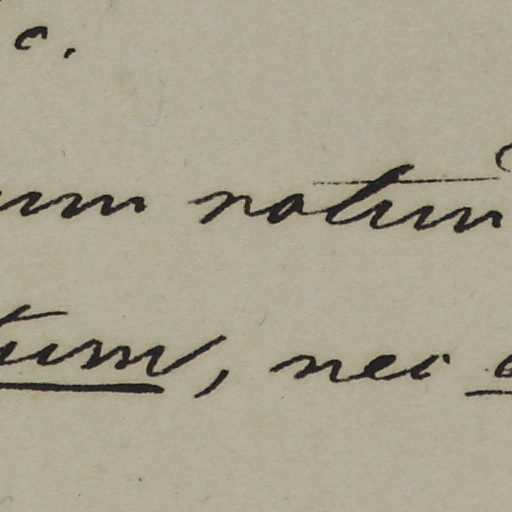 c.
um notum
tum, nec